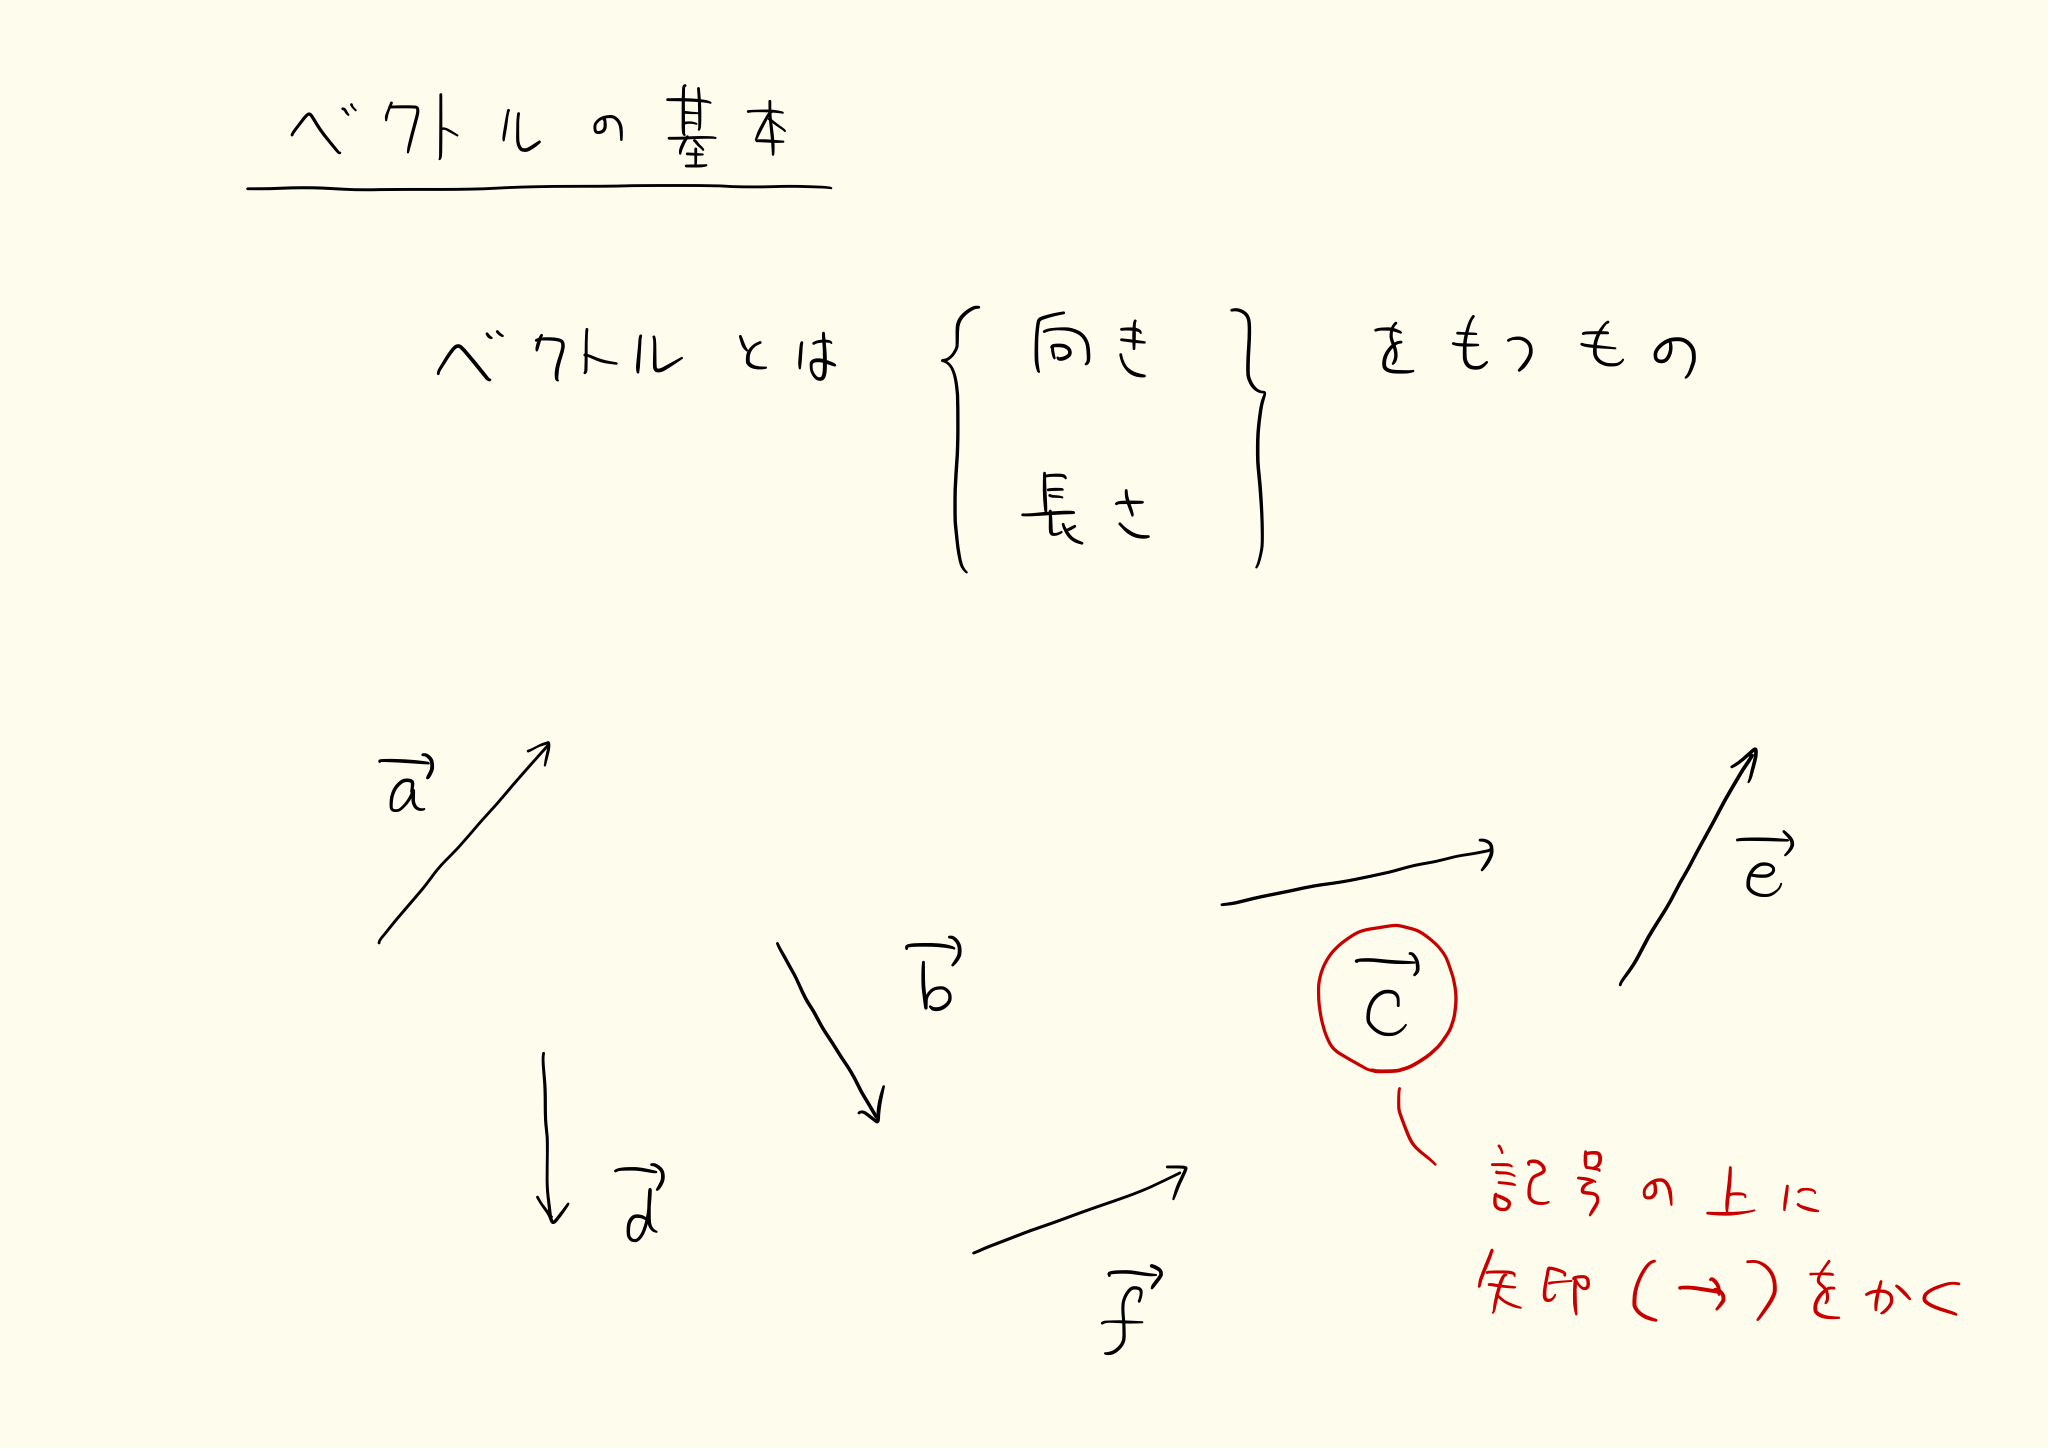 ベクトルの基本
ベクトルとは { 向き 長さ } をもつもの
a→
e→
b→
c→
d→
f→
記号の上に
矢印(→)をかく